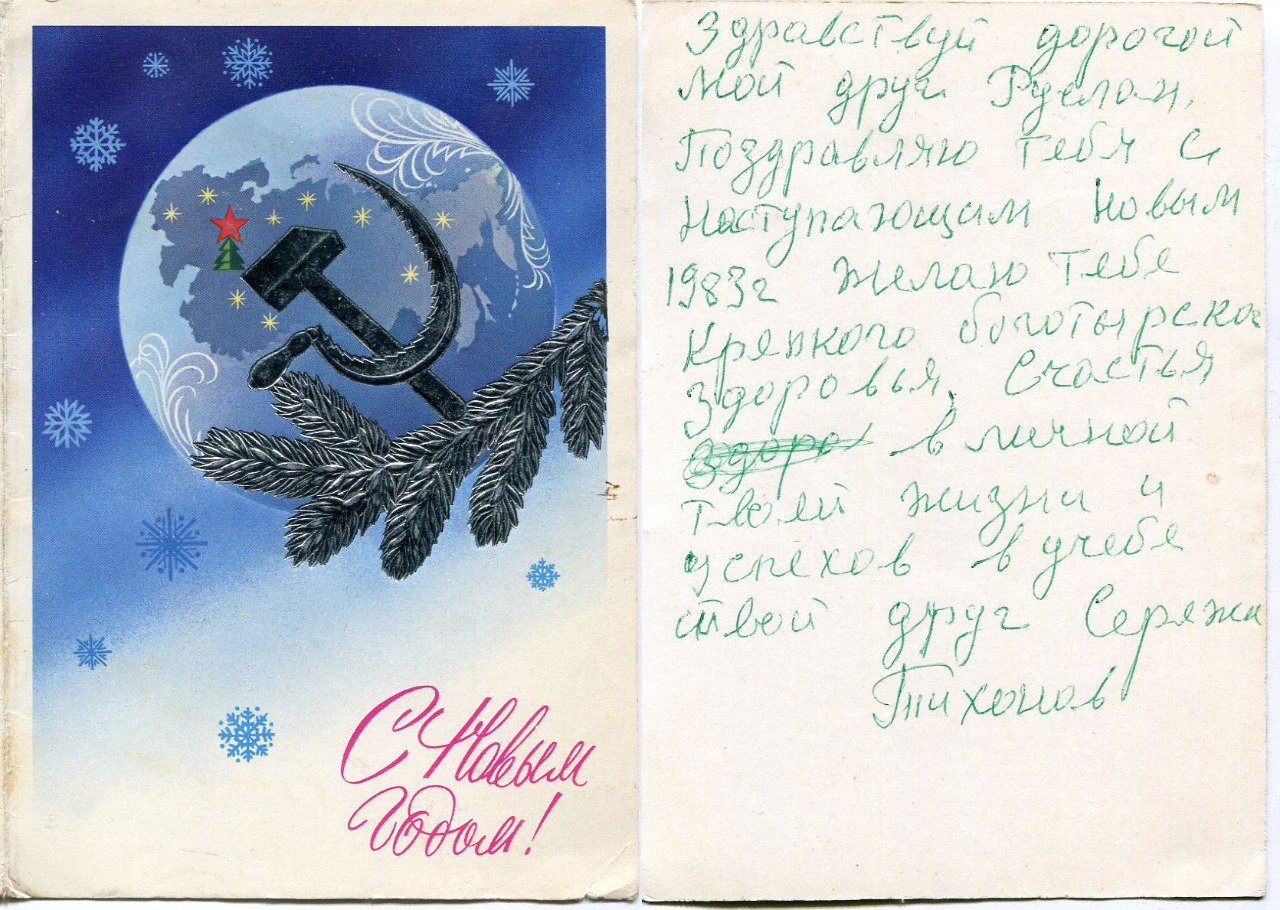 С Новым
годом!
Здравствуй дорогой
мой друг Руслан.
Поздравляю тебя с
наступающим новым
1983г желаю тебе
крепкого богатырског
здоровья, счастья
здоро в личной
твоей жизни и
успехов в учебе
твой друг Сережа
Тихонов